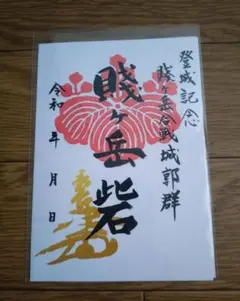 登城記念
賤ヶ岳合戦城郭群
賤ヶ岳砦
令和 年 月 日